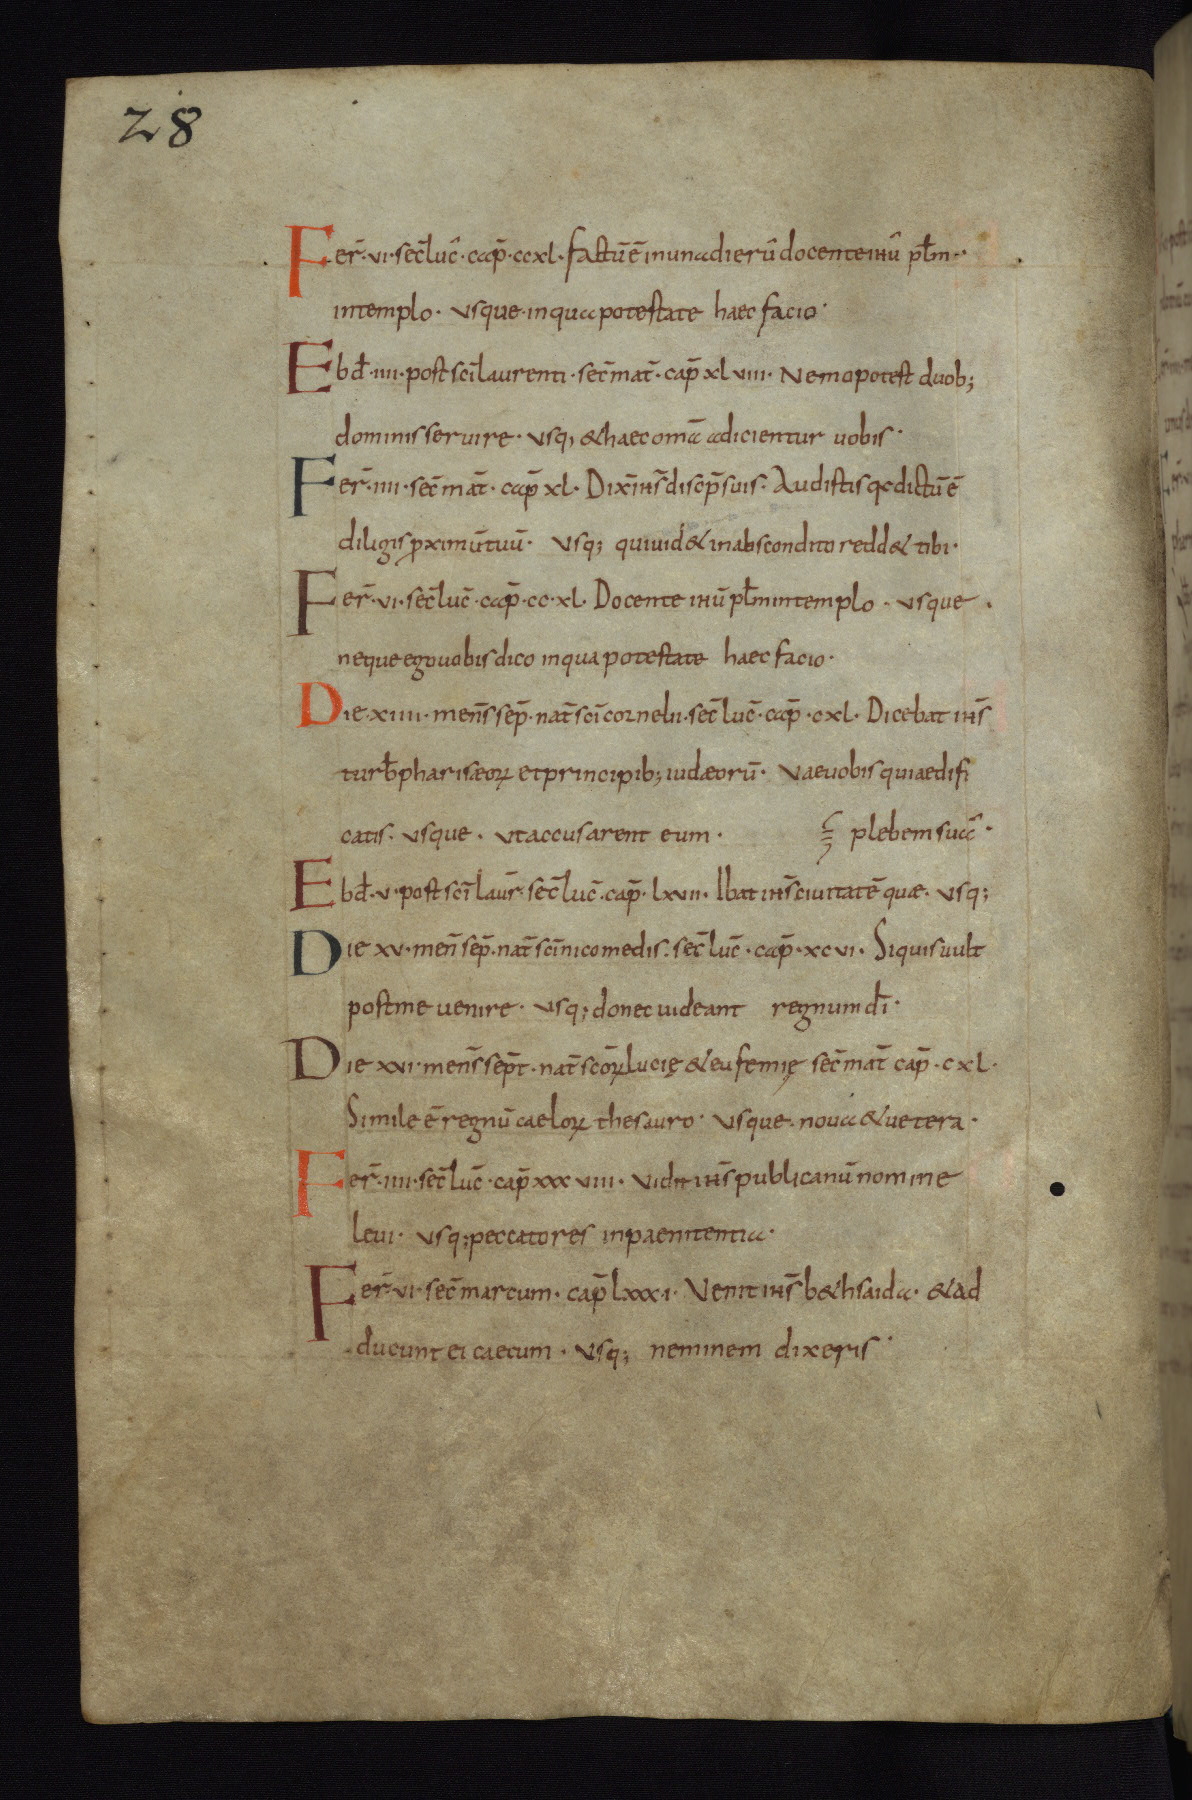 28
Fer̄·vi·sec̄luc̄·cap̄·ccxl·factūē inunadierū docenteihū płm·
intemplo· usque·inquapotestate haec facio·
Ebđ·iiii·post sc̄ilaurenti·sec̄mat̄·cap̄ xlviii· Nemopotest duob;
dominisseruire· usq; &haecomā adicientur uobis·
Fer̄·iiii·sec̄mat̄·cap̄ xl· Dix̄ ihs̄ discip̄suis· Audistisqđ dictūē
diligis ꝓximūtuū· usq; quiuid& inabscondito redd& tibi·
Fer̄·vi·sec̄luc̄·cap̄·cc·xl· Docente ihū płmintemplo· usque·
nequeegouobisdico inquapotestate haec facio·
Die·xiiii·mens̄ sep̄·nat̄ sc̄icornelii·sec̄luc̄·cap̄·cxl· Dicebat ihs̄
turb̄pharisæoꝝ etprincipib; iudæorū· Vaeuobisquiaedifi
catis· usque· utaccusarent eum· plebemsuā·
Ebđ·v·post sc̄ilaur̄·sec̄luc̄·cap̄·lxvii· Ibat ihs̄ ciuitatē quæ· usq;
Die xv·men̄ sep̄·nat̄ sc̄inicomedis·sec̄luc̄·cap̄·xcvi· Siquisuult
postme uenire· usq; donec uideant regnum dī·
Die xxi·mens̄ sept̄·nat̄ sc̄oꝝ lucię &eufemię sec̄mat̄ cap̄·cxl·
Simile ē regnū caeloꝝ thesauro· usque·noua &uetera·
Fer̄·iiii·sec̄luc̄·cap̄ xxxviii· Vidit ihs̄ publicanū nomine
leui· usq; peccatores inpaenitentia·
Fer̄·vi·sec̄marcum·cap̄ lxxxi· Venit ihs̄ b&hsaida·&ad
ducunt ei caecum· usq; neminem dixeris·